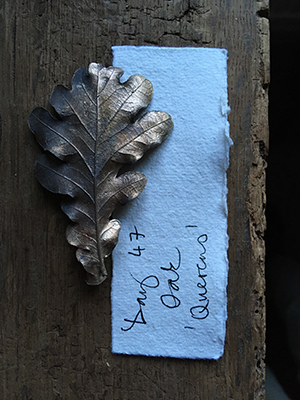 Day 47
Oak
'Quercus'